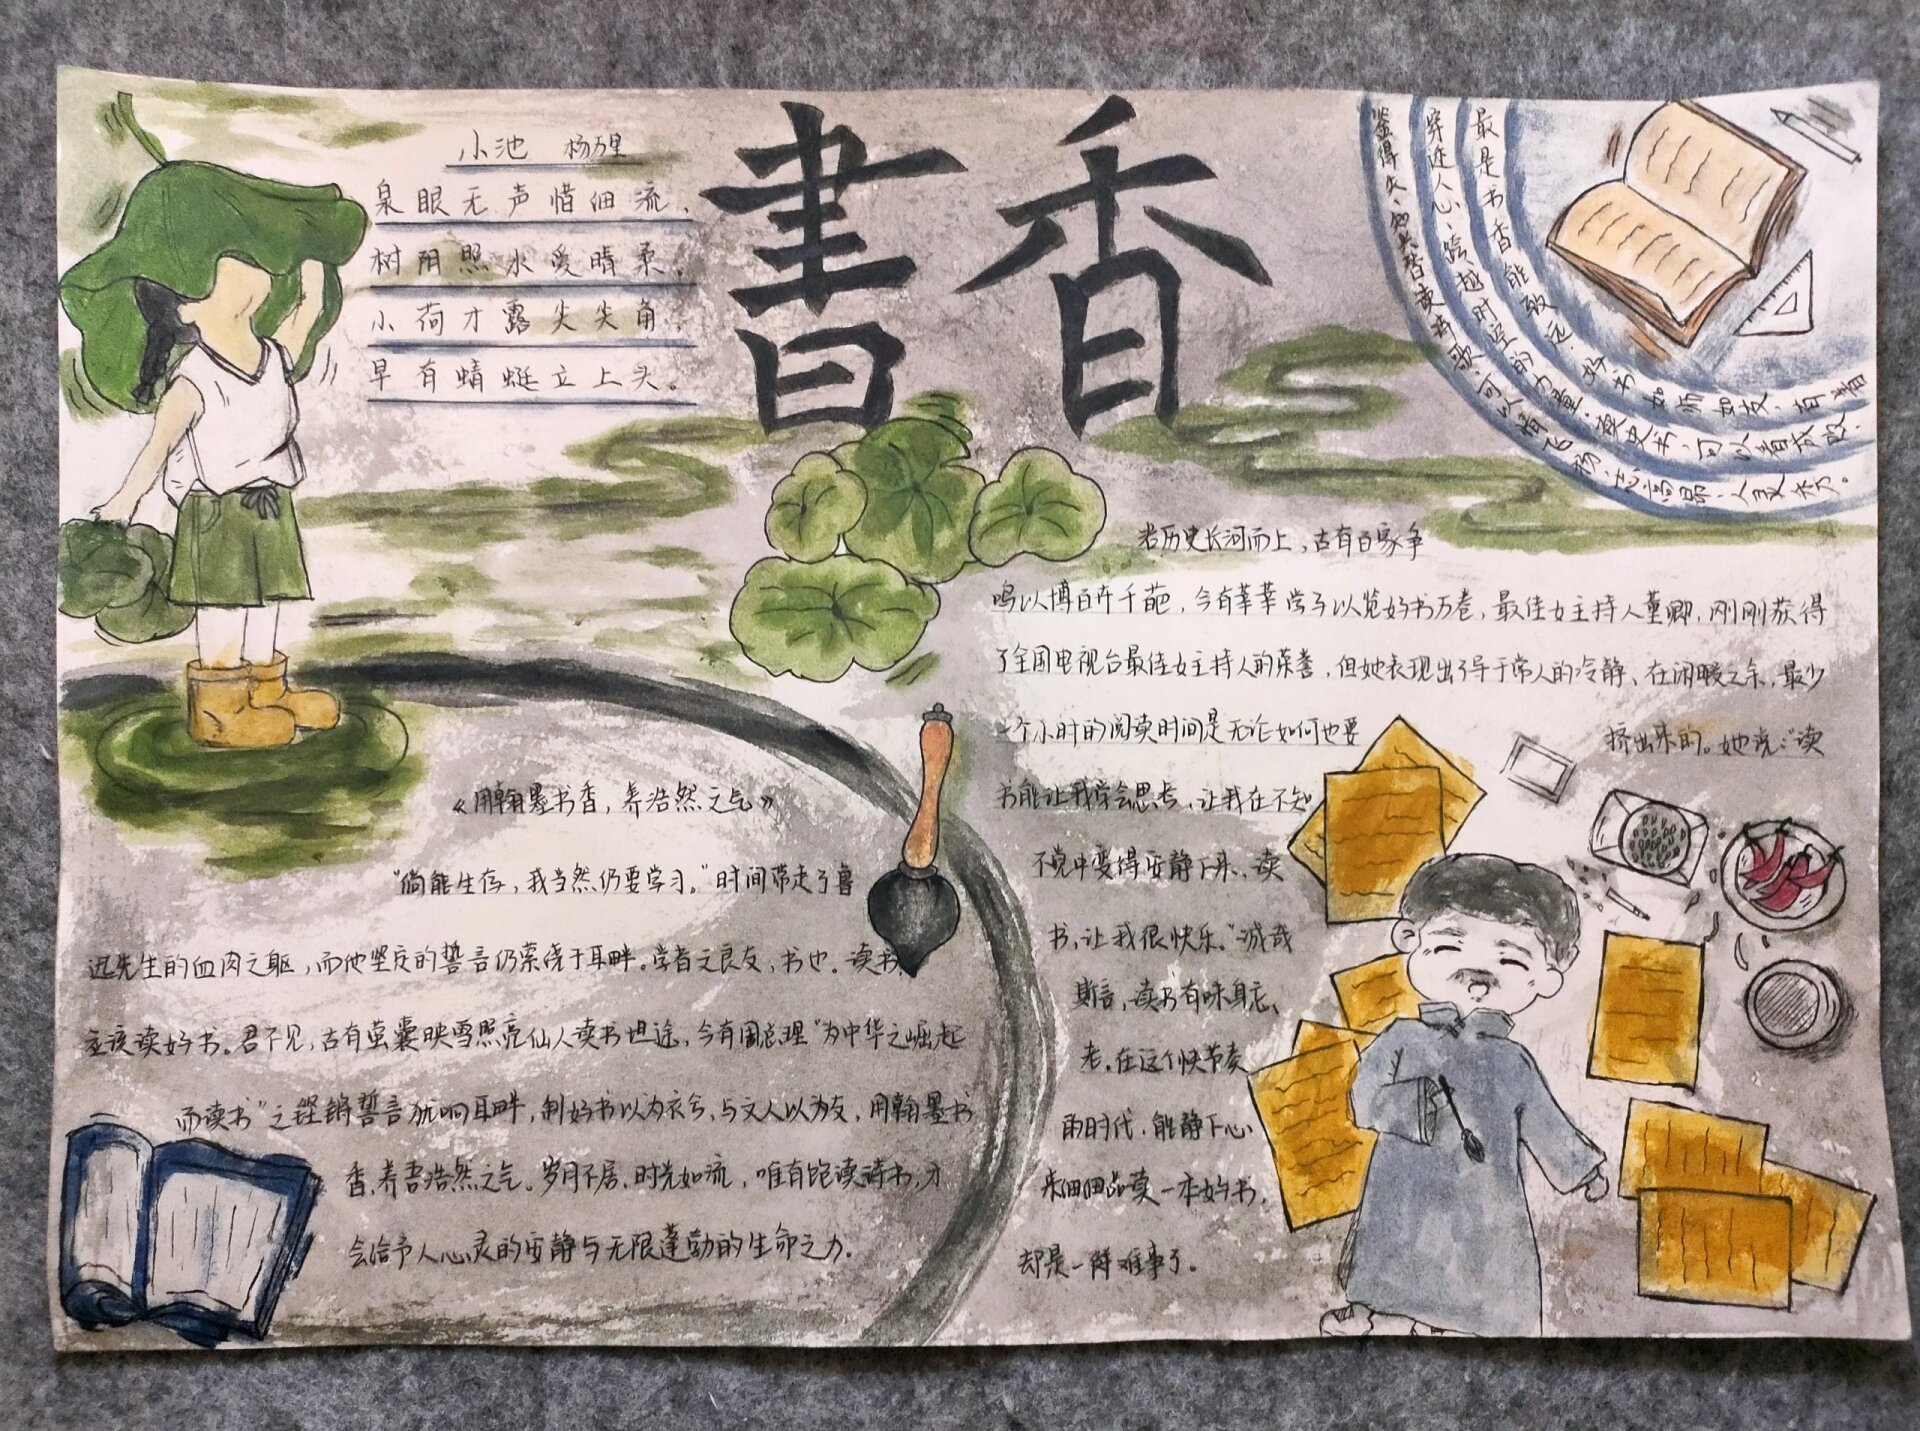 小池 杨万里
泉眼无声惜细流，
树阴照水爱晴柔。
小荷才露尖尖角，
早有蜻蜓立上头。
書香
最是书香能致远，好书如师如友，自着
穿过人心，跨越时空的力量。读史书，可以看成败，
鉴得失，知兴替；读诗歌，可以情飞扬，志高昂，人灵秀。
《用翰墨书香，养浩然之气》
“倘能生存，我当然仍要学习。”时间带走了鲁
迅先生的血肉之躯，而他坚定的誓言仍萦绕于耳畔。学者之良友，书也。读书
应该读好书。君不见，古有萤囊映雪照亮仙人读书坦途，今有周总理“为中华之崛起
而读书”之铿锵誓言犹响耳畔，制好书以为衣兮，与文人以为友，用翰墨书
香，养吾浩然之气。岁月不居，时光如流，唯有饱读诗书，才
会给予人心灵的安静与无限蓬勃的生命之力。
若历史长河而上，古有百家争
鸣以博百卉千葩，今有莘莘学子以览好书万卷，最佳女主持人董卿，刚刚获得
了全国电视台最佳女主持人的荣誉，但她表现出了异于常人的冷静、在闲暇之余，最少
一个小时的阅读时间是无论如何也要 挤出来的。她说：“读
书能让我学会思考，让我在不知
不觉中变得安静下来，读
书，让我很快乐。”诚哉
斯言，读书有味身忘
老。在这个快节奏
雨时代，能静下心
来细细品读一本好书，
却是一件难事了。